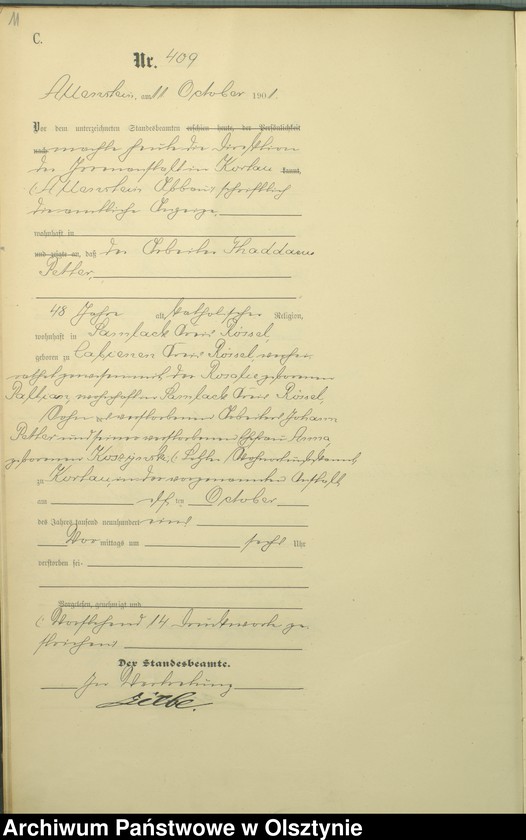 11
C.
Nr. 409
Allenstein, am 11 October 1901.
Vor dem unterzeichneten Standesbeamten erschien heute, der Persönlichkeit
nach machte heute die Direktion
der Irrenanstalt in Kortau kannt,
Allenstein schriftlich
die amtliche Anzeige,
wohnhaft in
und zeigte an, daß der Arbeiter Thaddaeus
Petter,
48 Jahre alt, katholischer Religion,
wohnhaft in Samlack Kreis Rössel,
geboren zu Kreis Rössel, verhei-
rathet gewesen mit der Rosalie geborenen
wohnhaft in Samlack Kreis Rössel,
Sohn des verstorbenen Arbeiters Johann
Petter und seiner verstorbenen Ehefrau Anna,
geborenen
zu Kortau in der vorgenannten Anstalt
am October
des Jahres tausend neunhundert eins
Vor mittags um sechs Uhr
verstorben sei.
Vorgelesen, genehmigt und
Vorstehend 14 Druckworte ge-
strichen.
Der Standesbeamte.
In Vertretung
Archiwum Państwowe w Olsztynie